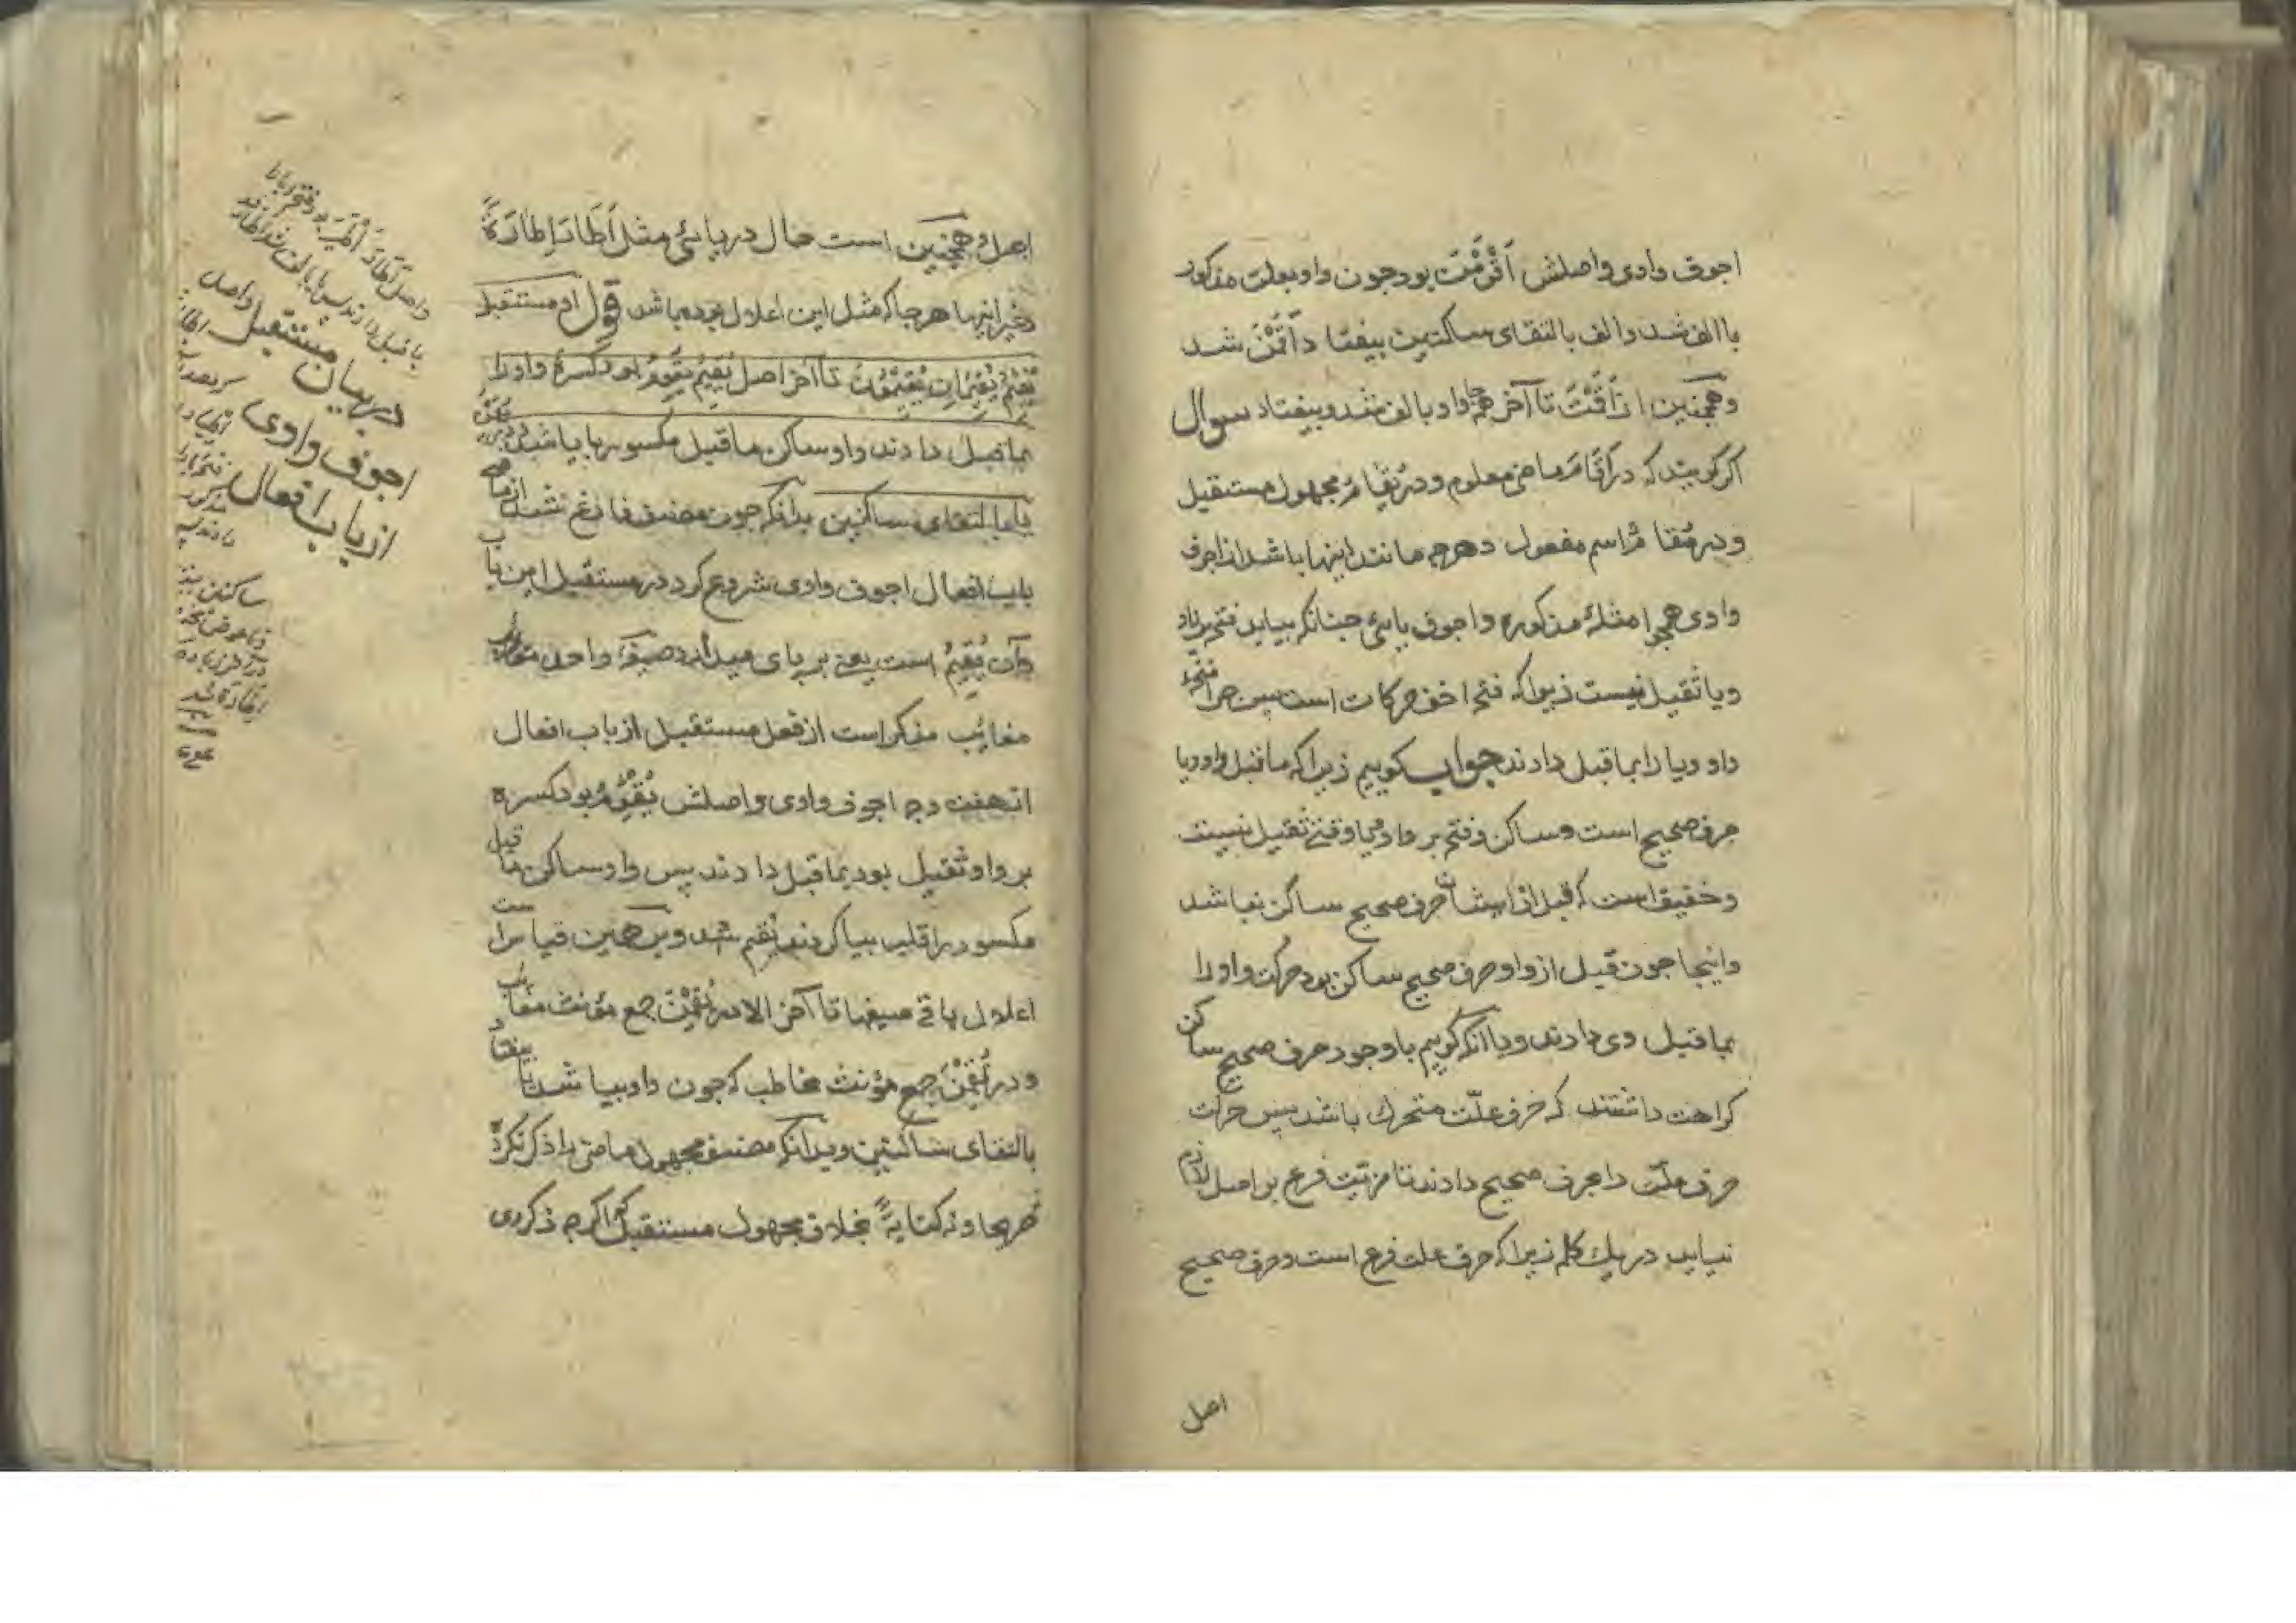 اجوف وادی واصلش اَقْوَمْنَ بود جون واو بعلت مذکور
با الف شد والف بالتقای ساکنین بیفتاد اَقَمْنَ شد
وهمچنین از اَقَمْتَ تا آخر همه جا واو با لف شد وبیفتاد سوال
اکر کویند که در اَقَامَ ماضی معلوم ودر یُقَامُ مجهول مستقبل
ودر مُقَامٌ اسم مفعول وهرچه مانند اینها باشد از اجوف
وادی همچو امثلهٔ مذکوره واجوف یایئ جنانکه بیاید فتحه بر واو
ویا ثقیل نیست زیراکه فتحه اخف حرکات است پس جرا فتحهٔ
واو ویا را بما قبل دادند جواب کوییم زیراکه ما قبل واو ویا
حرف صحیح است وساکن وفتحه بر واو ویا وقتی ثقیل نیست
وخفیف است که قبل از ایشان حرف صحیح ساکن نباشد
واینجا جون قبل از واو حرف صحیح ساکن بود حرکت واو را
بما قبل وی دادند ویا آنکه کوییم با وجود حرف صحیح ساکن
کراهت داشتند که حرف علّت متحرك باشد پس حرکت
حرف علّت را بحرف صحیح دادند تا مزیّت فرع بر اصل لازم
نیاید در یك کلمه زیراکه حرف علت فرع است وحرف صحیح
اصل
اصل وهمچنین است حال در یایئ مثل اَطَارَ اِطَارَةً
وغیر اینها هرجا که مثل این اعلال بوده باشد قول او مستقبل
یُقِیْمُ یُقِیْمَانِ یُقِیْمُوْنَ تا آخر اصل یُقِیْمُ یُقْوِمُ بود کسرهٔ واو را
بما قبل دادند واو ساکن ما قبل مکسور را یا شد
یا بالتقای ساکنین بدانکه جون مصنف فارغ شد از ماضی
باب افعال اجوف وادی شروع کرد در مستقبل این باب
وآن یُقِیْمُ است یعنی بر پای میدارد صیغهٔ واحد
مغایب مذکر است از فعل مستقبل از باب افعال
از هفت وجه اجوف وادی واصلش یُقْوِمُ بود کسره
بر واو ثقیل بود بما قبل دادند پس واو ساکن ما قبل
مکسور را قلب بیا کردند یُقِیم شد وبر همین قیاس است
اعلال باقی صیغها تا آخر الا در یُقِمْنَ جمع مؤنث مغایب
ودر تُقِمْنَ جمع مؤنث مخاطب که جون واو بیا شد یا بیفتاد
بالتقای ساکنین وبدانکه مصنف مجهول ماضی را ذکر نکرد
صریحا ونه کنایةً بخلاف مجهول مستقبل که اکرچه ذکر وی
در بیان مستقبل
اجوف وادی
از باب افعال